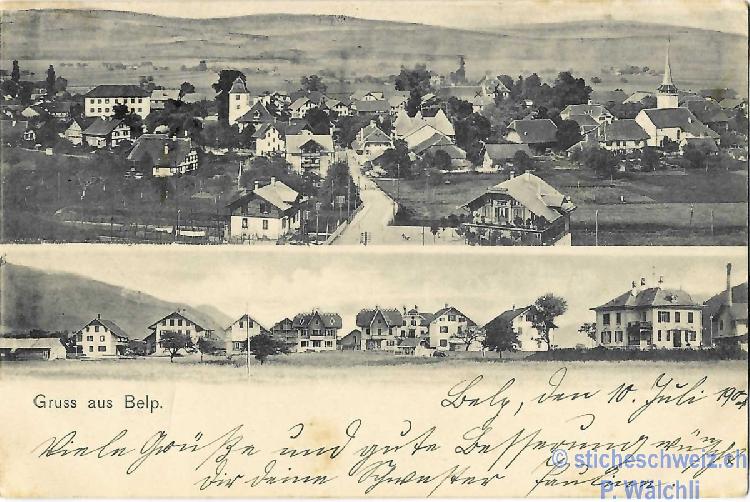 Gruss aus Belp.
Belp, den 10. Juli 190
Viele Grüße und gute Besserung wünscht
dir deine Schwester Pauline
© sticheschweiz.ch
P. Wälchli